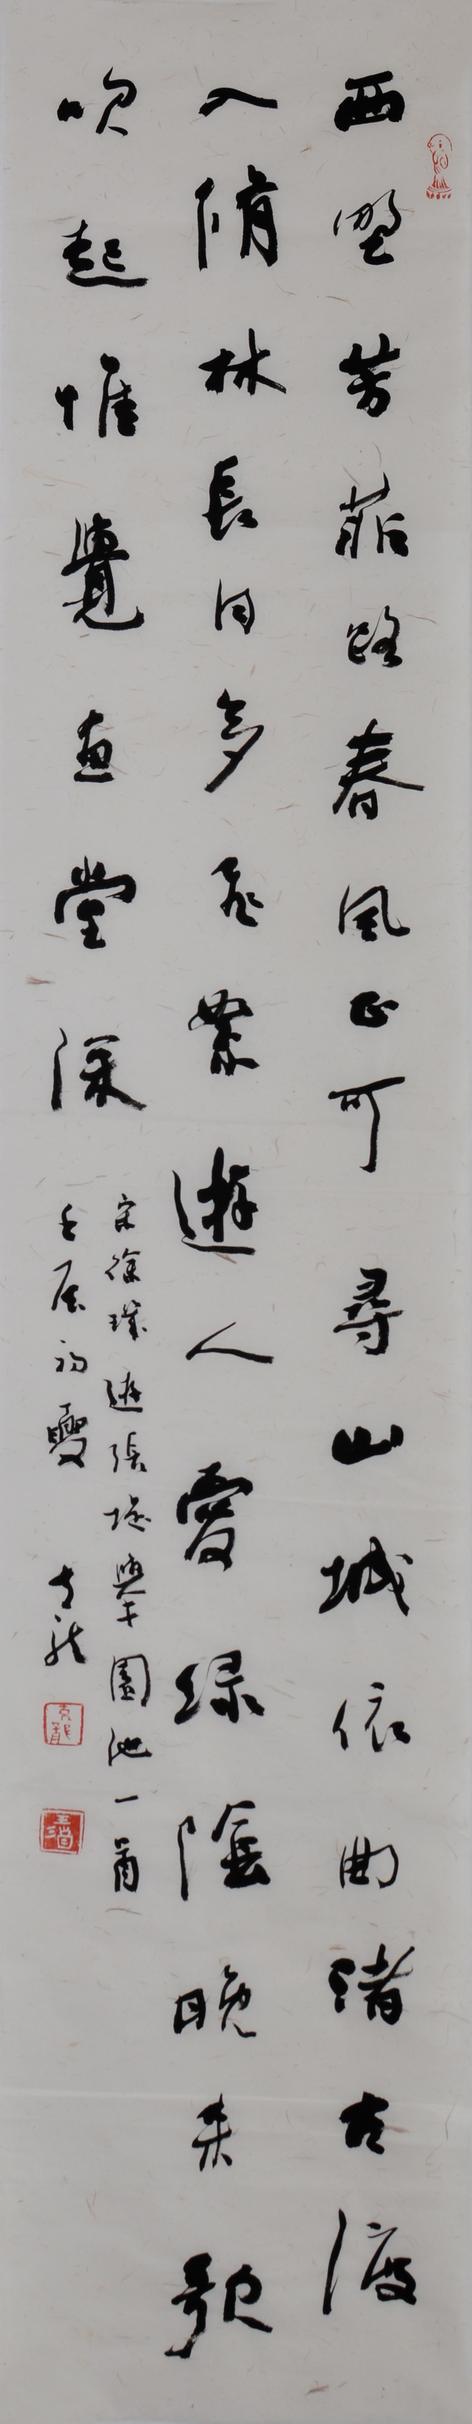 西野芳菲路春風正可尋山城依曲渚古渡
入脩林長日多飛絮遊人愛绿陰晚来歌
吹起惟覺畫堂深
宋徐璣遊張提舉園池一首
壬辰初夏 克龙